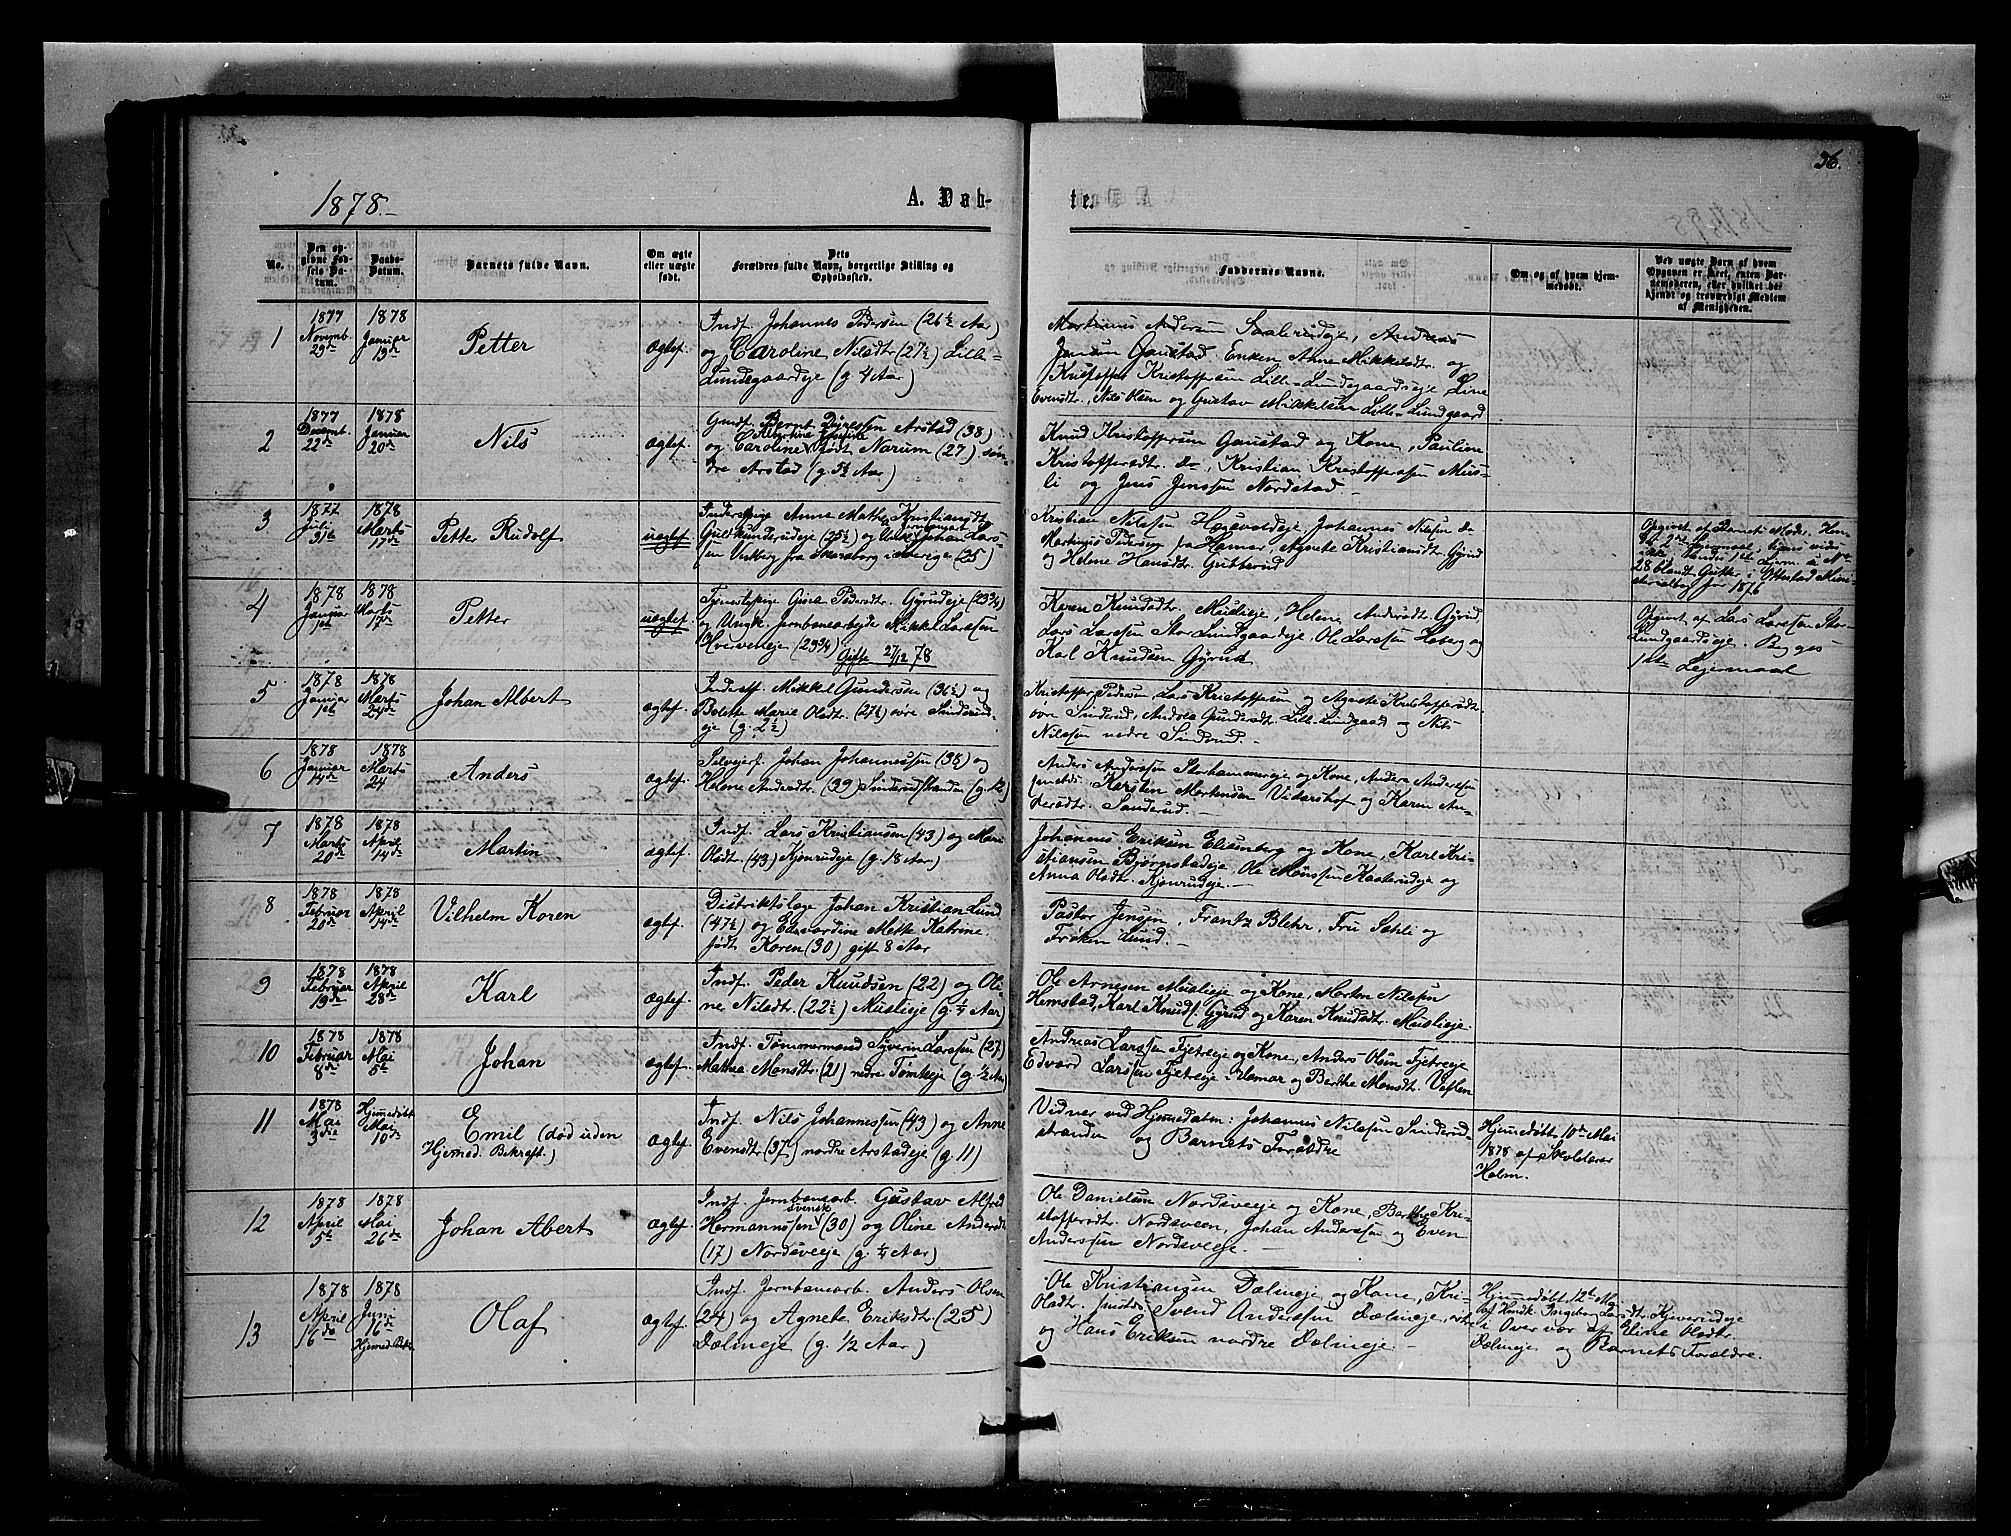 36.
1878.
A. Døb-
te.
No.
Den opgivne Fødsels Datum.
Daabs-Datum.
Barnets fulde Navn.
Om ægte eller uægte født.
Dets Forældres fulde Navn, borgerlige Stilling og Opholdssted.
Faddernes Navne.
Om og af hvem hjemmedøbt.
Ved uægte Barn af hvem Opgaven er skeet, enten Barnemoderen, eller hvilket bekjendt og troværdigt Medlem af Menigheden.
1
1877 Novemb. 29de
1878 Januar 19de
Petter
ægtef.
Indf. Johannes Pedersen (26½ Aar)
og Caroline Nilsdtr. (27½) Lille-
Lundegaardeje (g. 4 Aar)
Martinus Andersen Saalerudeje, Andreas
Jensen Gaustad Enken Anne Mikkelsdtr. og
Kristoffer Kristoffersen Lille-Lundgaardseje Line
Evensdtr., Nils Olsen og Gustav Mikkelsen Lille-Lundgaard
2
1877 Decemb. 22de
1878 Januar 20de
Nils
ægtef.
Gaardbr. Bernt Dyressen Arstad (38)
og Caroline født Narum (27) søn-
dre Arstad (g. 5½ Aar)
Knud Kristoffersen Gaustad og Kone, Pauline
Kristoffersdtr. do, Kristian Kristoffersen Mus-
li og Jens Jenssen Nordstad.
3
1877 Juli 31te
1878 Marts 17de
Petter Rudolf
uægtef.
Inderstpige Anne Mathea Kristiansdtr.
Guldkunderudeje (25½) og Johan Lars-
sen fra Skaraborg i Sverige (25)
Kristian Nilssen Hagevoldeje, Johannes Nilssen do
Martinus Pedersen fra Hamar, Agnete Kristiansdtr. Gyrud
og Helene Hansdtr. Gutterud
Opgivet af Barnets Moder. Hen-
des 2det Lejermaal,
ikke hendes 1ste Lejerm. i No
28 blandt Gutter i Ottestad Mini-
sterialbog for 1876
4
1878 Januar 1ste
1878 Marts 17de
Petter
uægtef.
Tjenestepige Gina Pedersdtr. Gyrudeje (23¾)
og Ungk. Jernbanearbejder Mikkel Larssen
Hverveneje (23¾)
Gifte 27/12 78
Karen Knudsdtr. Muslieje, Helene Andersdtr. Gyrud,
Lars Larssen Stor-Lundgaardeje, Ole Larssen Hoberg og
Karl Knudsen Gyrud
Opgivet af Lars Larssen Stor-
Lundgaardseje. Begges
1ste Lejermaal
5
1878 Januar 1ste
1878 Marts 24de
Johan Albert
ægtef.
Inderst. Mikkel Gundersen (36½) og
Bolette Marie Olsdtr. (27½) øvre Sinderud-
eje (g. 2½)
Kristoffer Pedersen, Lars Kristoffersen og Agnete Kristoffersdtr.
øvre Sinderud, Andrea Gundersdtr. Lille-Lundgaard og Nils
Nilssen nedre Sinderud.
6
1878 Januar 14de
1878 Marts 24
Anders
ægtef.
Selvejerf. Johan Johannessen (38) og
Helene Andersdtr. (39) Sinderudstranden (g. 12)
Anders Andersen Storhammereje og Kone, Anders Andersen
Karsten Mortensen Vidarshof og Karen An-
dersdtr. Sanderud.
7
1878 Marts 20de
1878 April 14de
Martin
ægtef.
Indf. Lars Kristiansen (43) og Mari
Olsdtr. (43) Kjonrudeje (g. 18 Aar)
Johannes Eriksen Elisenberg og Kone, Karl Kri-
stiansen Bjørnstadeje, Ole Monssen Kaaterudeje og
Anna Olsdtr. Kjonrudeje.
8
1878 Februar 20de
1878 April 14de
Vilhelm Koren
ægtef.
Distriktslæge Johan Kristian Lund
(47½) og Edvardine Mette Katrine
født Koren (30) gift 8 Aar
Pastor Jensen, Frantz Blehr, Fru Sehli og
Frøken Lund.
9
1878 Februar 19de
1878 April 28de
Karl
ægtef.
Indf. Peder Knudsen (22) og Oli-
ne Nilsdtr. (22½) Muslieje (g. ¼ Aar)
Ole Arnesen Muslieje og Kone, Morten Nilssen
Hemstad, Karl Knuds. Gyrud og Karen Knudsdtr. Muslieje.
10
1878 Februar 8de
1878 Mai 5te
Johan
ægtef.
Indf. Tømmermand Syverin Larssen (27)
Mathea Monsdtr. (21) nedre Tomteeje (g. ½ Aar)
Andreas Larssen Fjetreeje og Kone, Anders Olsen Fjetreeje
Edvard Larssen Fjetreje-Hamar og Berthe Monsdt. Veflen
11
1878 Mai 3die
Hjemmedøbt Mai 10de
Emil (død uden
Hjemmed. Bekræft.)
ægtef.
Indf. Nils Johannessen (43) og Anne
Evensdtr. (37) nordre Arstadeje (g. 11)
Vidner ved Hjemmedaaben: Johannes Nilssen Sinderud-
stranden og Barnets Forældre
Hjemmedøbt 10de Mai
1878 af Skolelærer
Holm.
12
1878 April 5te
1878 Mai 26de
Johan Abert
ægtef.
Indf. Jernbanearb. Gustav Alfred
svensk
Hermannssen (30) og Oline Andersdtr.
(17) Nordsveeje (g. ¼ Aar)
Ole Danielsen Nordsveeje og Kone, Berthe Kri-
stoffersdtr. Nordsveen, Johan Anderssen og Even
Anderssen Nordsveeje.
13
1878 April 16de
1878 Juni 16de Hjemmed. Bekr.
Olaf
ægtef.
Indf. Jernbanearb. Anders Olsen
(24) og Agnete Eriksdtr. (25)
Dælineje (g. ½ Aar)
Ole Kristiansen Dælineje og Kone, Kri-
Olsdtr. Svend Anderssen Dælineje,
og Hans Eriksen nordre Dælineje.
Hjemmedøbt 12te Mai
af Ingeborg Larsdtr. Kjeverudeje
i Overvær af Eline Olsdtr.
Dælineje og Barnets Forældre.